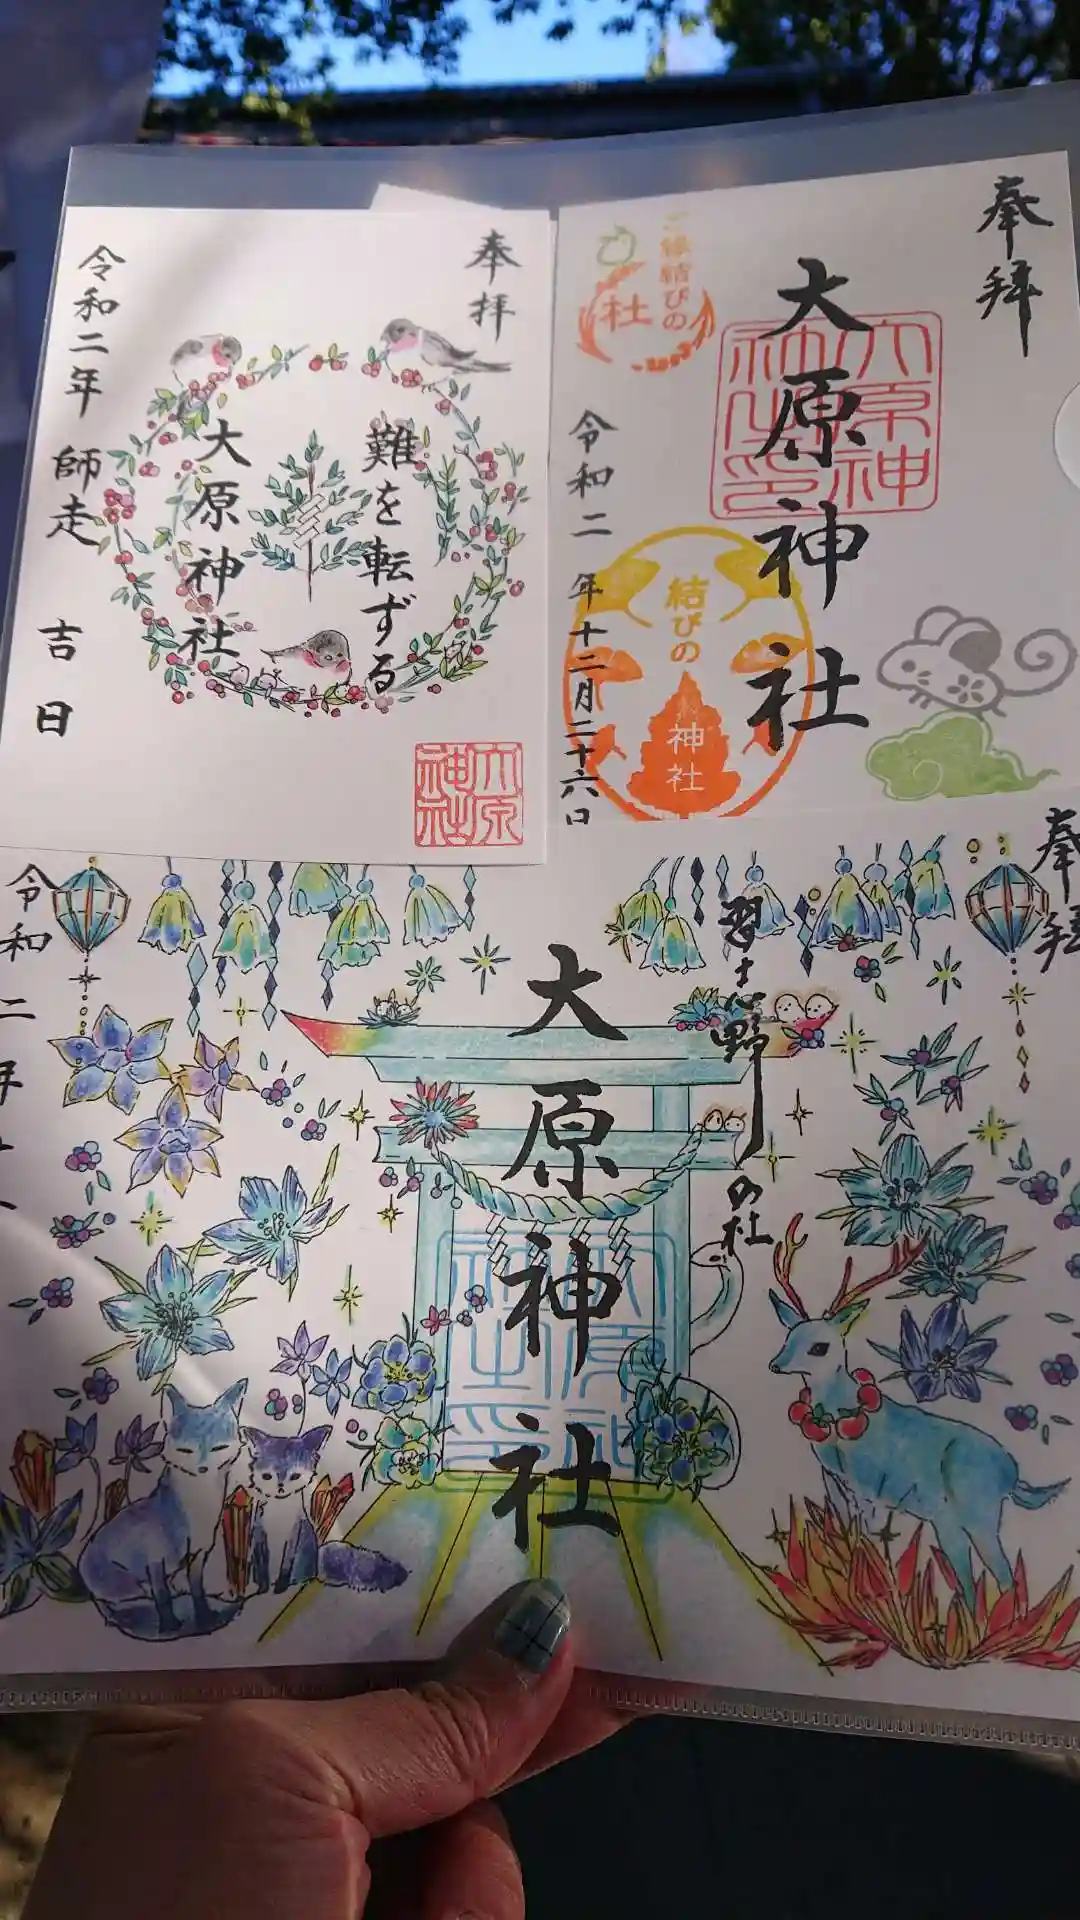 奉拝
難を転ずる
大原神社
令和二年 師走 吉日
大原神社
奉拝
大原神社
大原神社之印
ご縁結びの
社
結びの
神社
令和二年十二月二十六日
奉拝
習志野の杜
大原神社
大原神社之印
令和二年十二